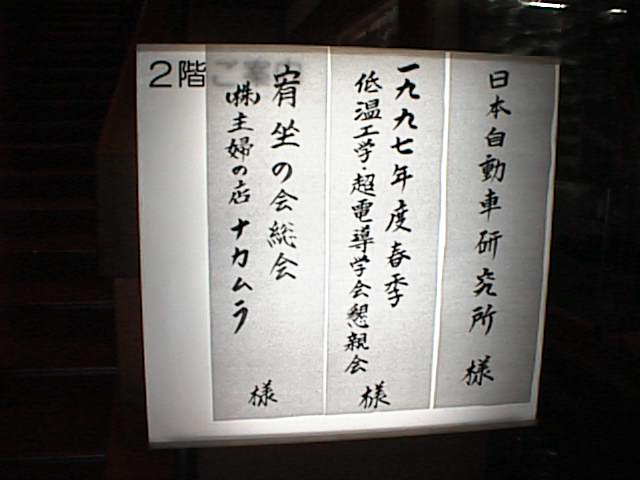 2階ご案内
日本自動車研究所 様
一九九七年度春季
低温工学・超電導学会懇親会 様
宥坐の会総会
(株)主婦の店ナカムラ 様